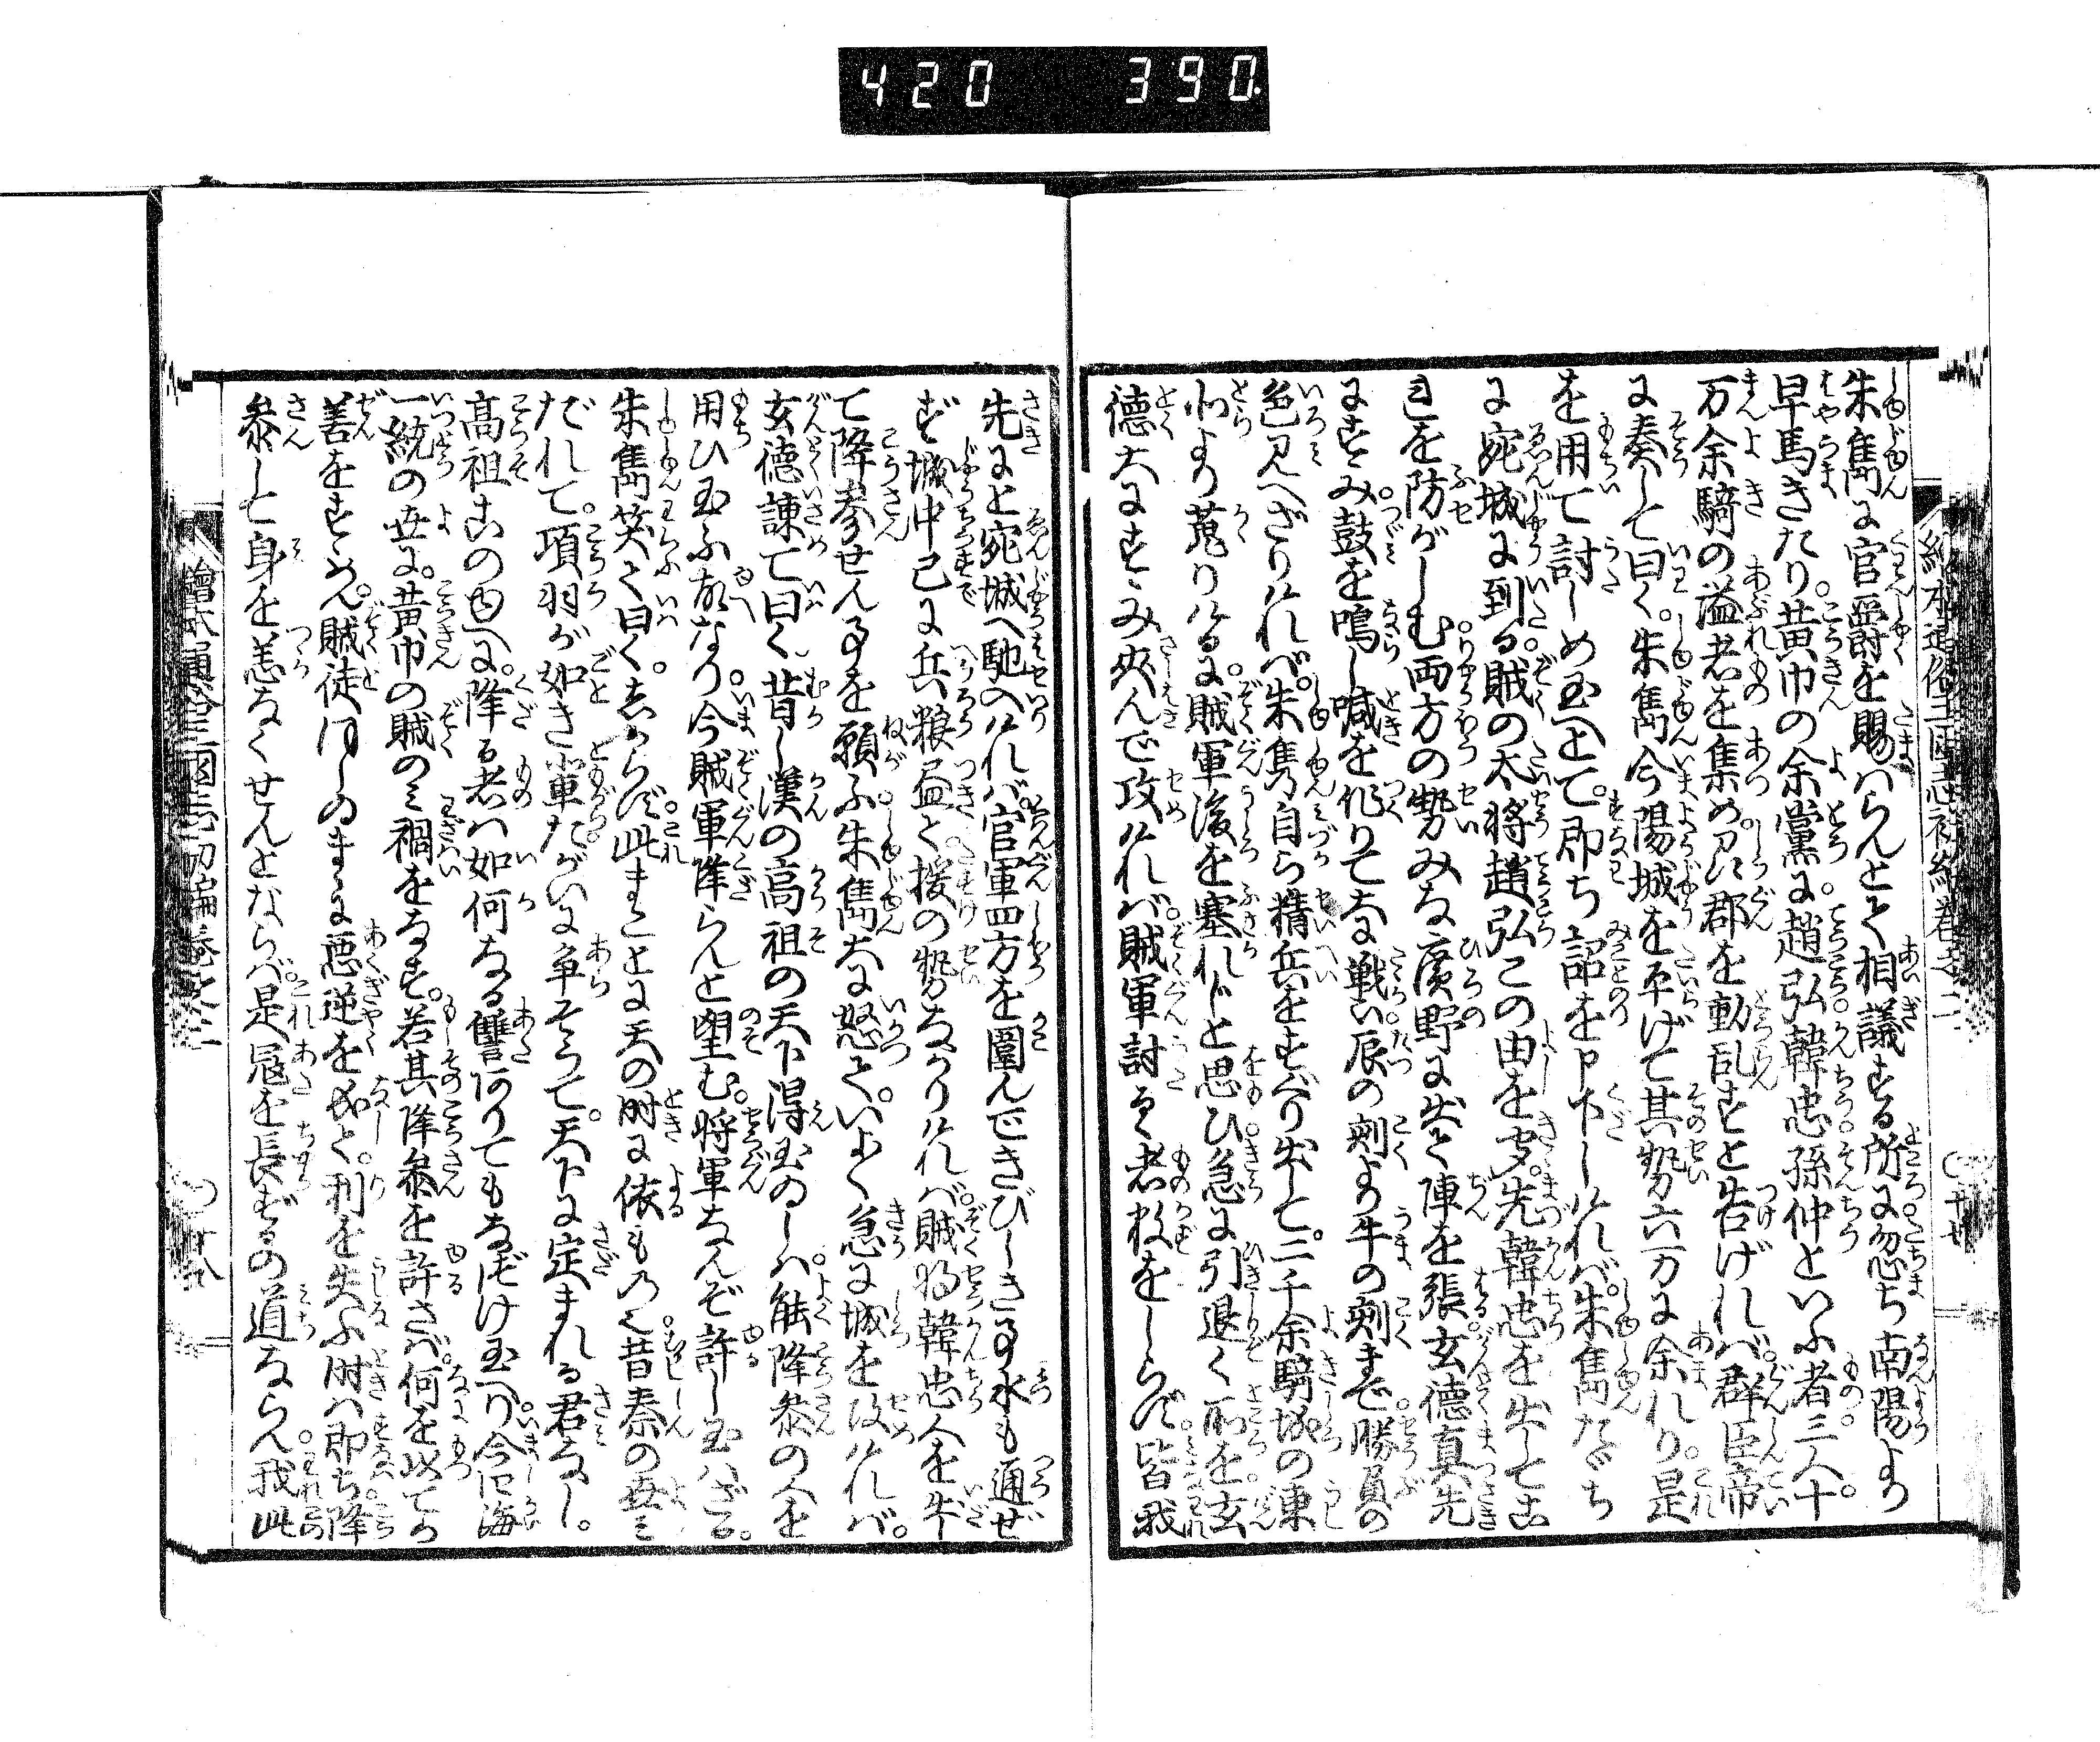 420 390
朱雋に官爵を賜はらんとて相議する所に忽ち南陽より
早馬きたり。黄巾の余黨に趙弘韓忠孫仲といふ者三人。十
万余騎の溢者を集め。州郡を動乱すと告げれば。群臣帝
に奏して曰く。朱雋今陽城を平げて其勢六万に余れり。是
を用て討しめ玉へとて。即ち詔を下しければ。朱雋たゞち
に宛城に到る。賊の太将趙弘この由を聞。先韓忠を出してこ
れを防がしむ。両方の勢みな廣野に出て陣を張。玄德真先
にすゝみ鼓を鳴し喊を作りて大に戦い辰の剋より午の剋まで勝負の
色見へざりければ。朱雋自ら精兵をすぐり出て。二千余騎城の東
北より蒐りけるに。賊軍後を塞れじと思ひ急に引退く所を玄
德大にすゝみ夾んで攻ければ。賊軍討るゝ者数をしらず。皆我
先にと宛城へ馳入ければ。官軍四方を圍んできびしき事水も通ぜ
ず城中已に兵粮尽て援の勢なかりければ。賊将韓忠人を出し
て降参せん事を願ふ。朱雋大に怒て。いよ〳〵急に城を攻ければ。
玄德諌て曰く昔し漢の高祖の天下得玉ゐしは。能降参の人を
用ひ玉ふ故なり。今賊軍降らんと望む。将軍なんぞ許し玉はざる。
朱雋笑て曰く。しからず。此まことに天の時に依ものぞ。昔秦の世み
だれて。項羽が如き輩たがいに争そうて。天下に定まれる君なし。
高祖この由へに。降る者は如何なる讐ありてもなづけ玉へり。今四海
一統の世に。黄巾の賊のみ禍をなす。若其降参を許さば。何を以てか
善をすゝめん。賊徒ほしゐまゝに悪逆を成て。利を失ふ時は即ち降
参して身を恙なくせんとならば。是冦を長ずるの道ならん。我此